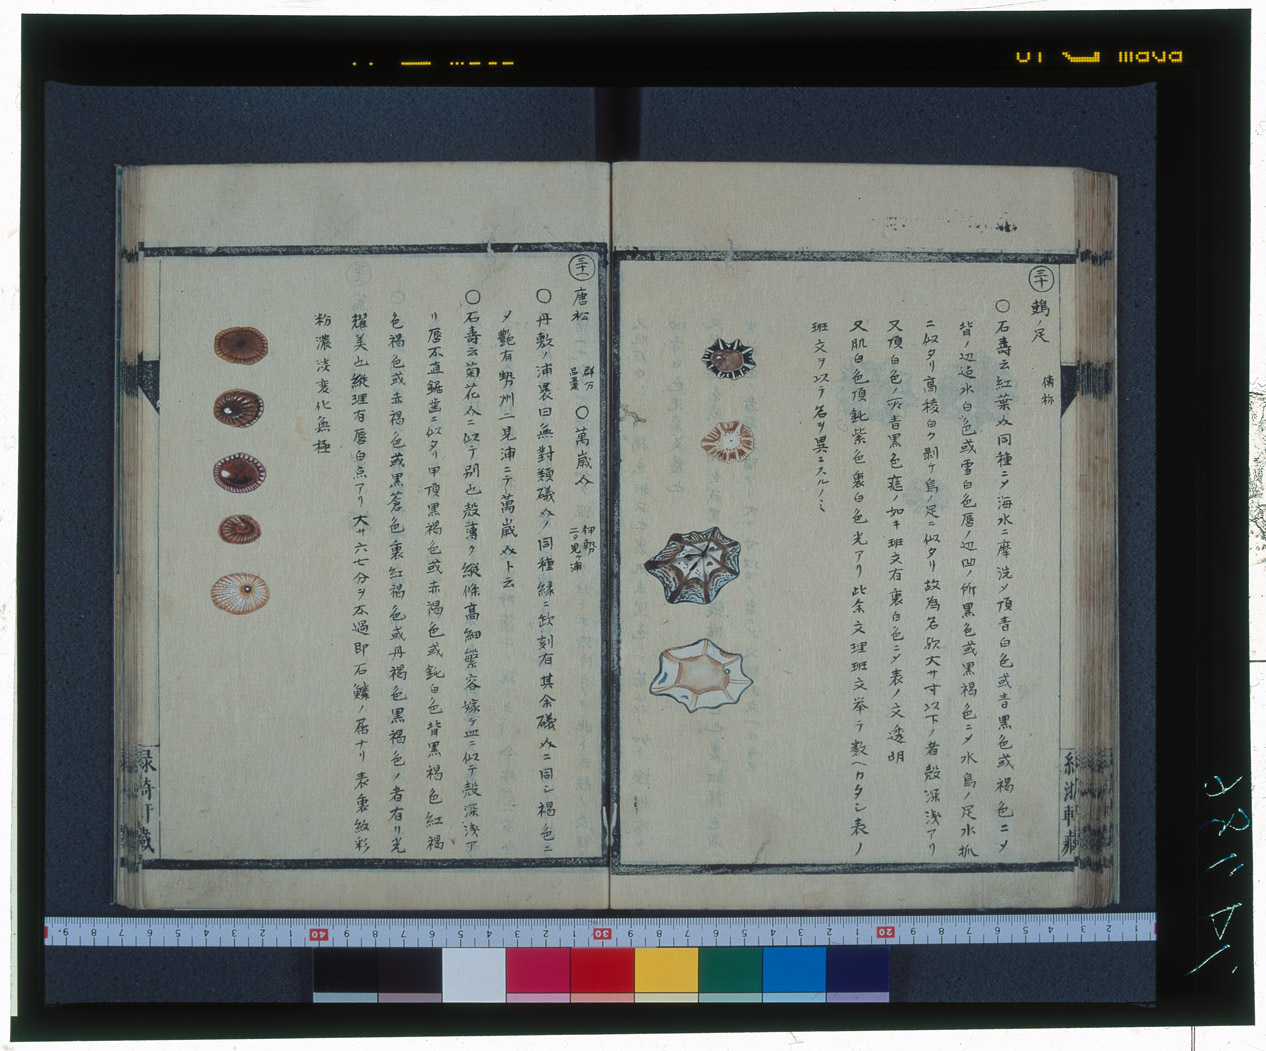 三十 鵜ノ足 俗称
○石壽云紅葉介同種ニメ海水ニ摩洗メ頂青白色或青黒色或褐色ニメ
背ノ辺迠水白色或雪白色唇ノ辺凹ノ所黒色或黒褐色ニメ水鳥ノ足水抓
ニ似タリ高稜白ク剥ケ鳥ノ足ニ似タリ故為名欤大サ寸以下ノ者殻深浅アリ
又頂白色ノ灰青黒色痣ノ如キ班文有裏白色ニメ表ノ文透明
又肌白色頂鈍紫色裏白色光アリ此余文理班文挙テ数ヘカタシ表ノ
班文ヲ以テ名ヲ異ニスルノミ
三十一 唐松 群分品彙 ○萬歳介 伊勢二見ノ浦
○丹敷ノ浦裏曰無對類礒介ノ同種縁ニ欽刻有其余礒介ニ同シ褐色ニ
メ艶有勢州二見浦ニテ萬歳介ト云
○石壽云菊花介ニ似テ別也殻薄ク縦條高細繁容嫁ケ皿ニ似テ殻深浅ア
リ唇不直鋸歯ニ似タリ甲頂黒褐色或赤褐色或鈍白色背黒褐色紅褐
色褐色或赤褐色或黒蒼色裏紅褐色或丹褐色黒褐色ノ者有リ光
耀美也縦理有唇白点アリ大サ六七分ヲ不過即石鱗ノ属ナリ表裏紋彩
粉濃淡変化無極
30
20
40